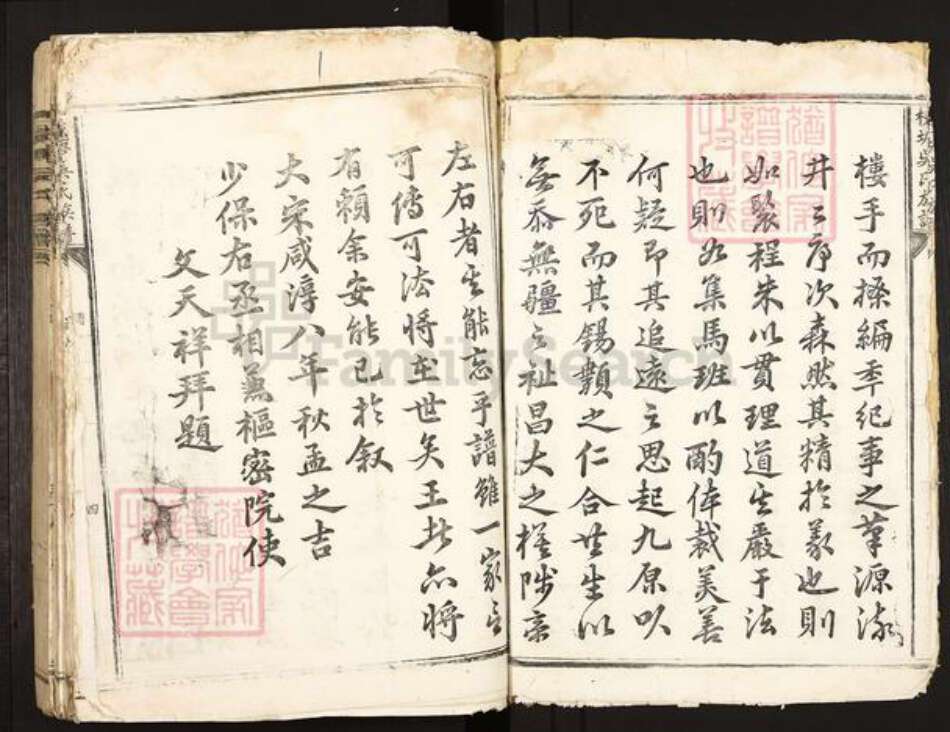 樓手而操編季紀事之筆源流
井〻序次森然其精於義也則
如聚程朱以貫理道其嚴于法
也則如集馬班以酌体裁美善
何疑即其追遠之思起九原以
不死而其錫類之仁合世生以
無忝無疆之祉昌大之様陟亲
左右者其能忘乎譜雖一家言
可傳可法將在世矣王此亦將
有賴余安能已於叙
大宋咸淳八年秋孟之吉
少保右丞相兼樞密院使
文天祥拜題
四
FamilySearch